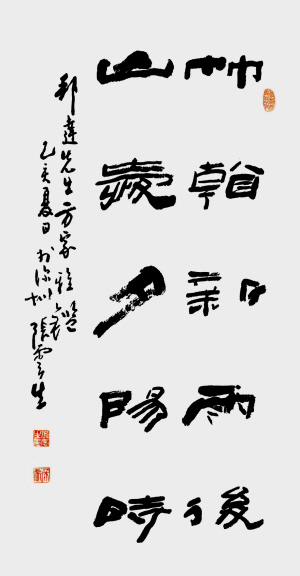 竹憐新雨後
山愛夕陽時
邦達先生方家雅鑒
乙亥夏日於深圳張雲生